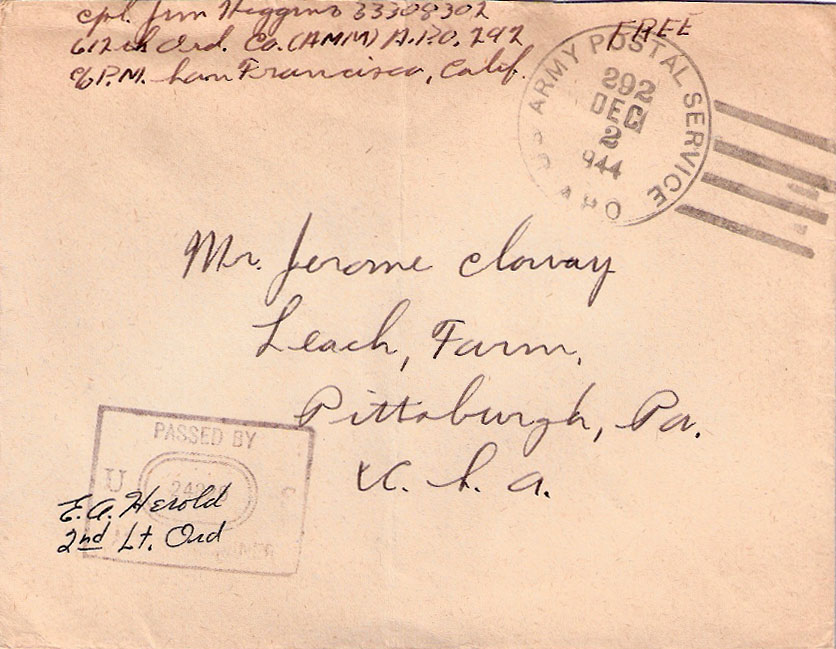 Cpl. Jim Higgins 33308302
612th Ord. Co. (AMM) A.P.O. 292
℅ P.M. San Francisco, Calif.
FREE
U.S. ARMY POSTAL SERVICE
292
DEC
2
944
APO
Mr. Jerome Clovay
Leach, Farm,
Pittsburgh, Pa.
U. S. A.
PASSED BY
U
E.A. Herold
2nd Lt. Ord